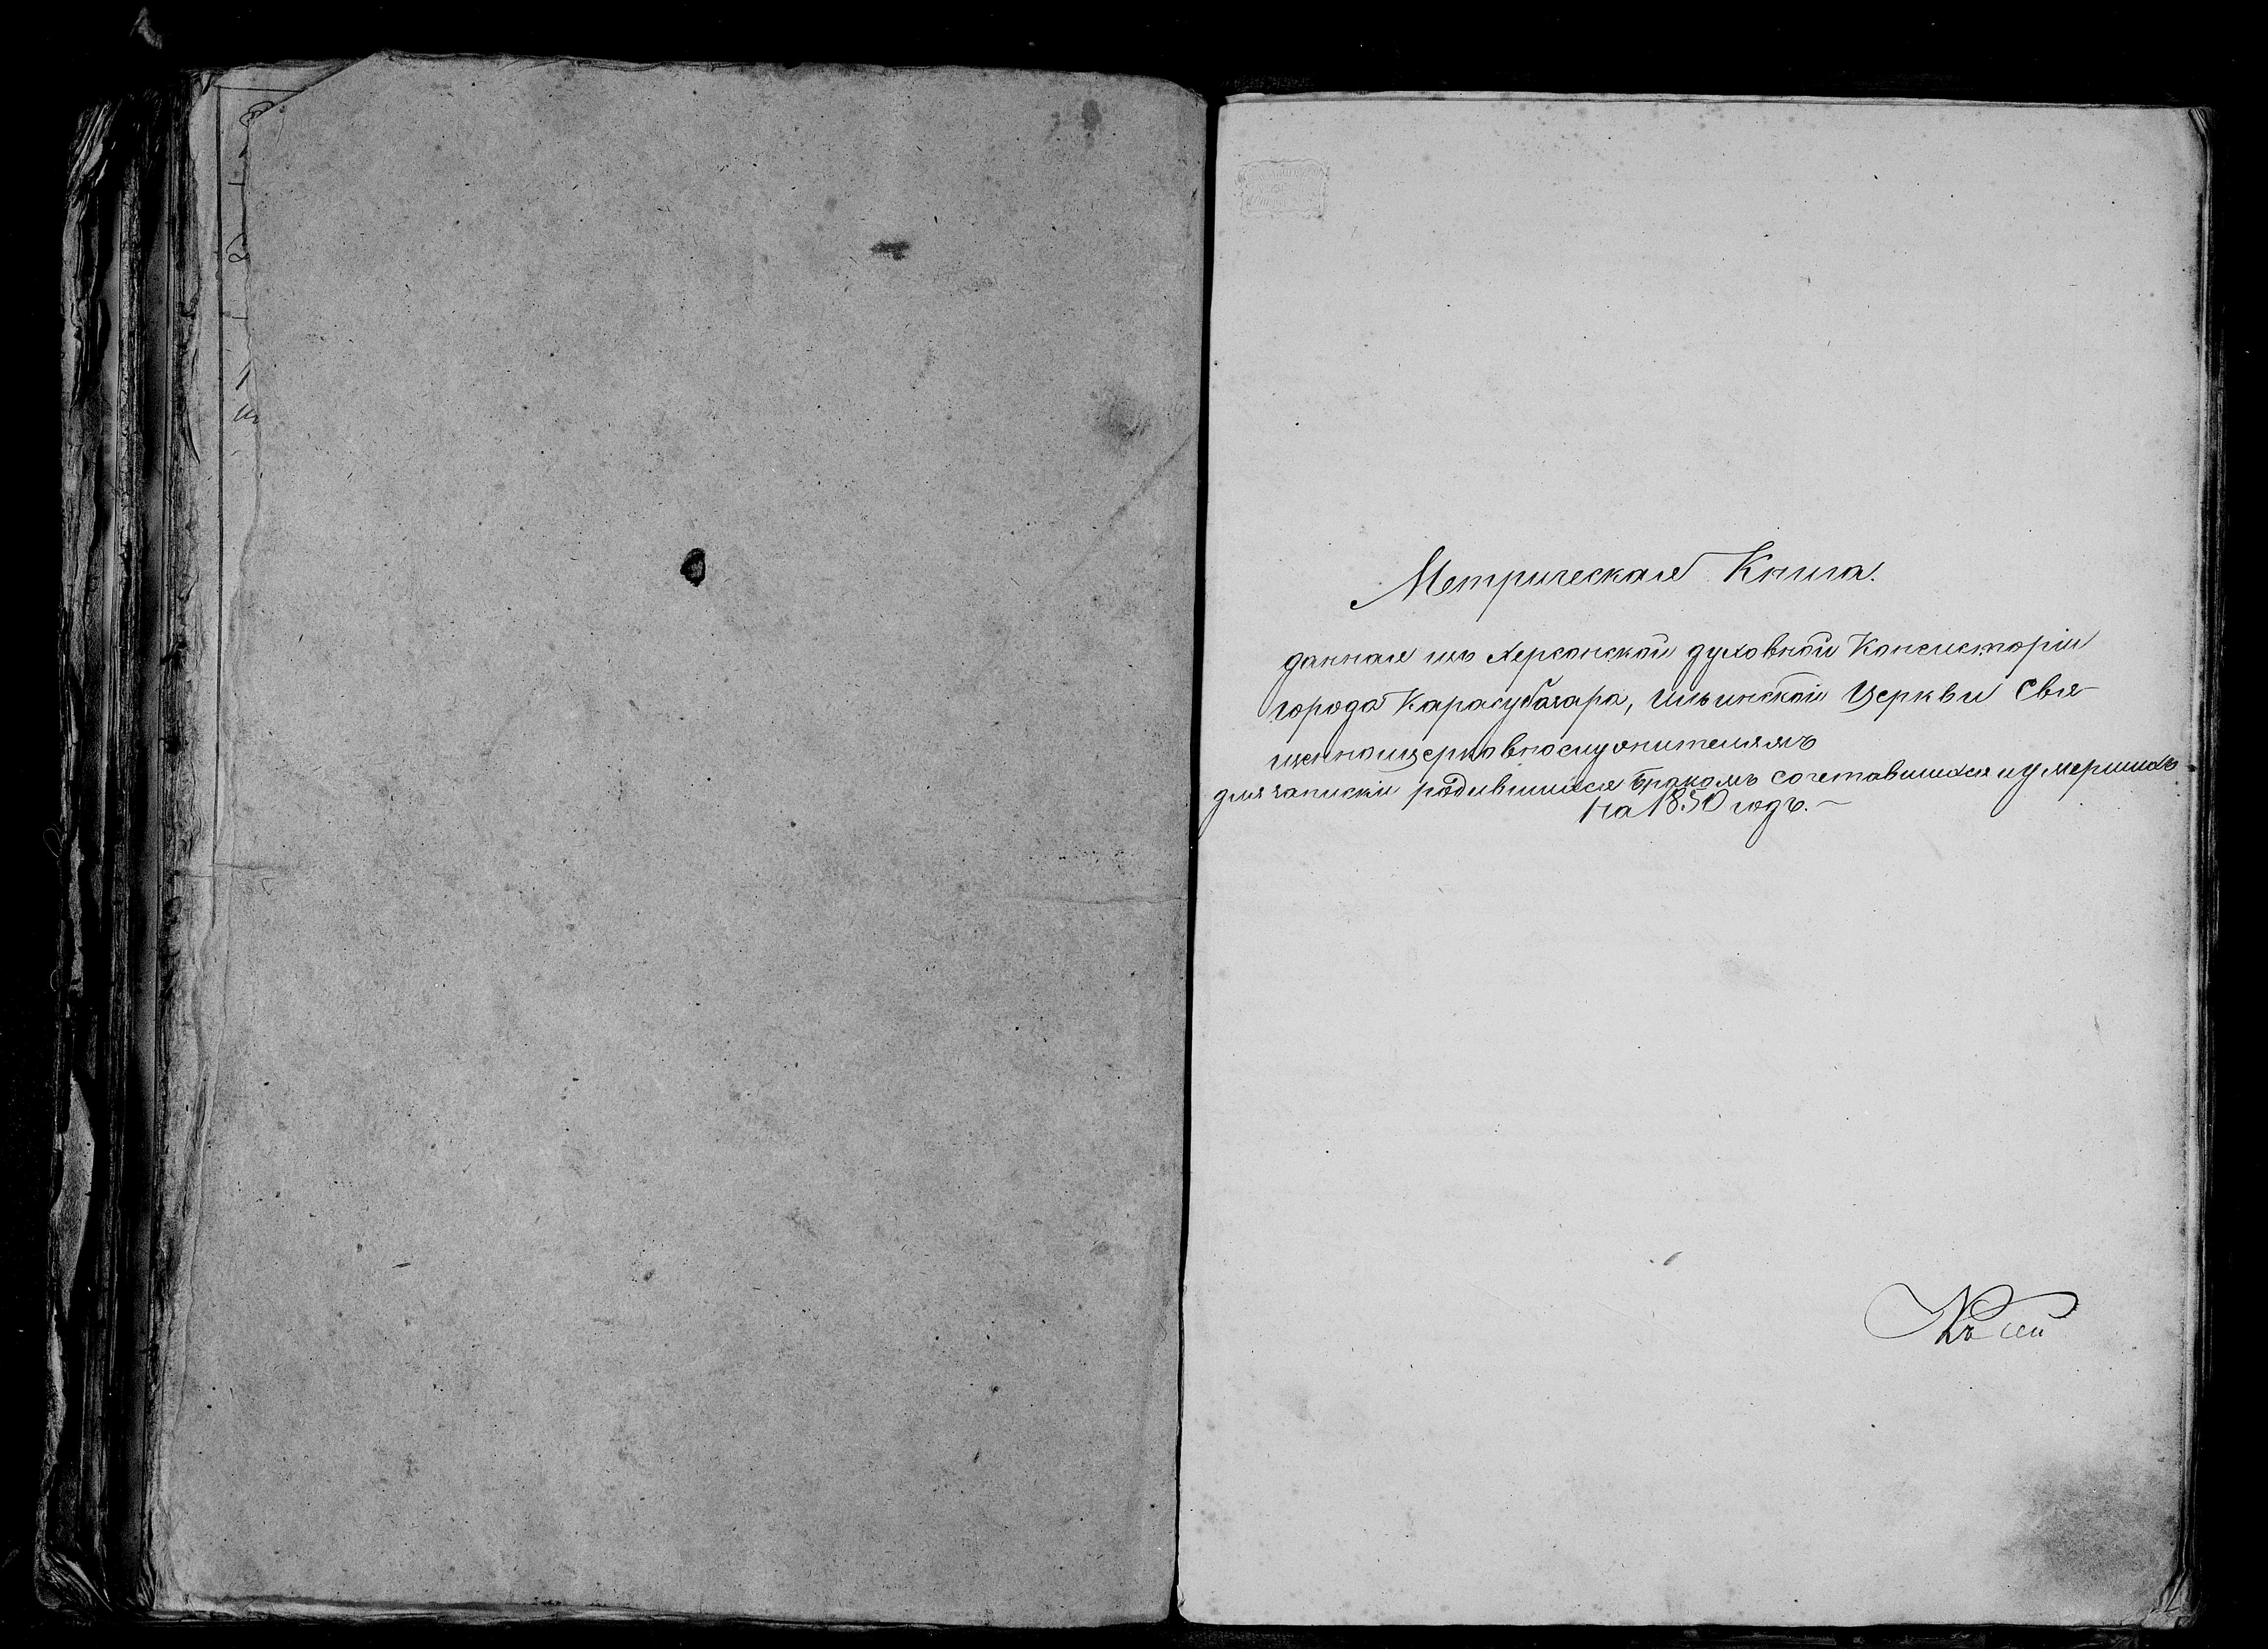 Метрическая Книга.
данная изъ Херсонской духовной Консисторіи
города Карасубазара, Ильинской Церкви Свя-
щенноцерковнослужителямъ
для записки родившихся бракомъ сочетавшихся и умершихъ
на 1850 годъ. –